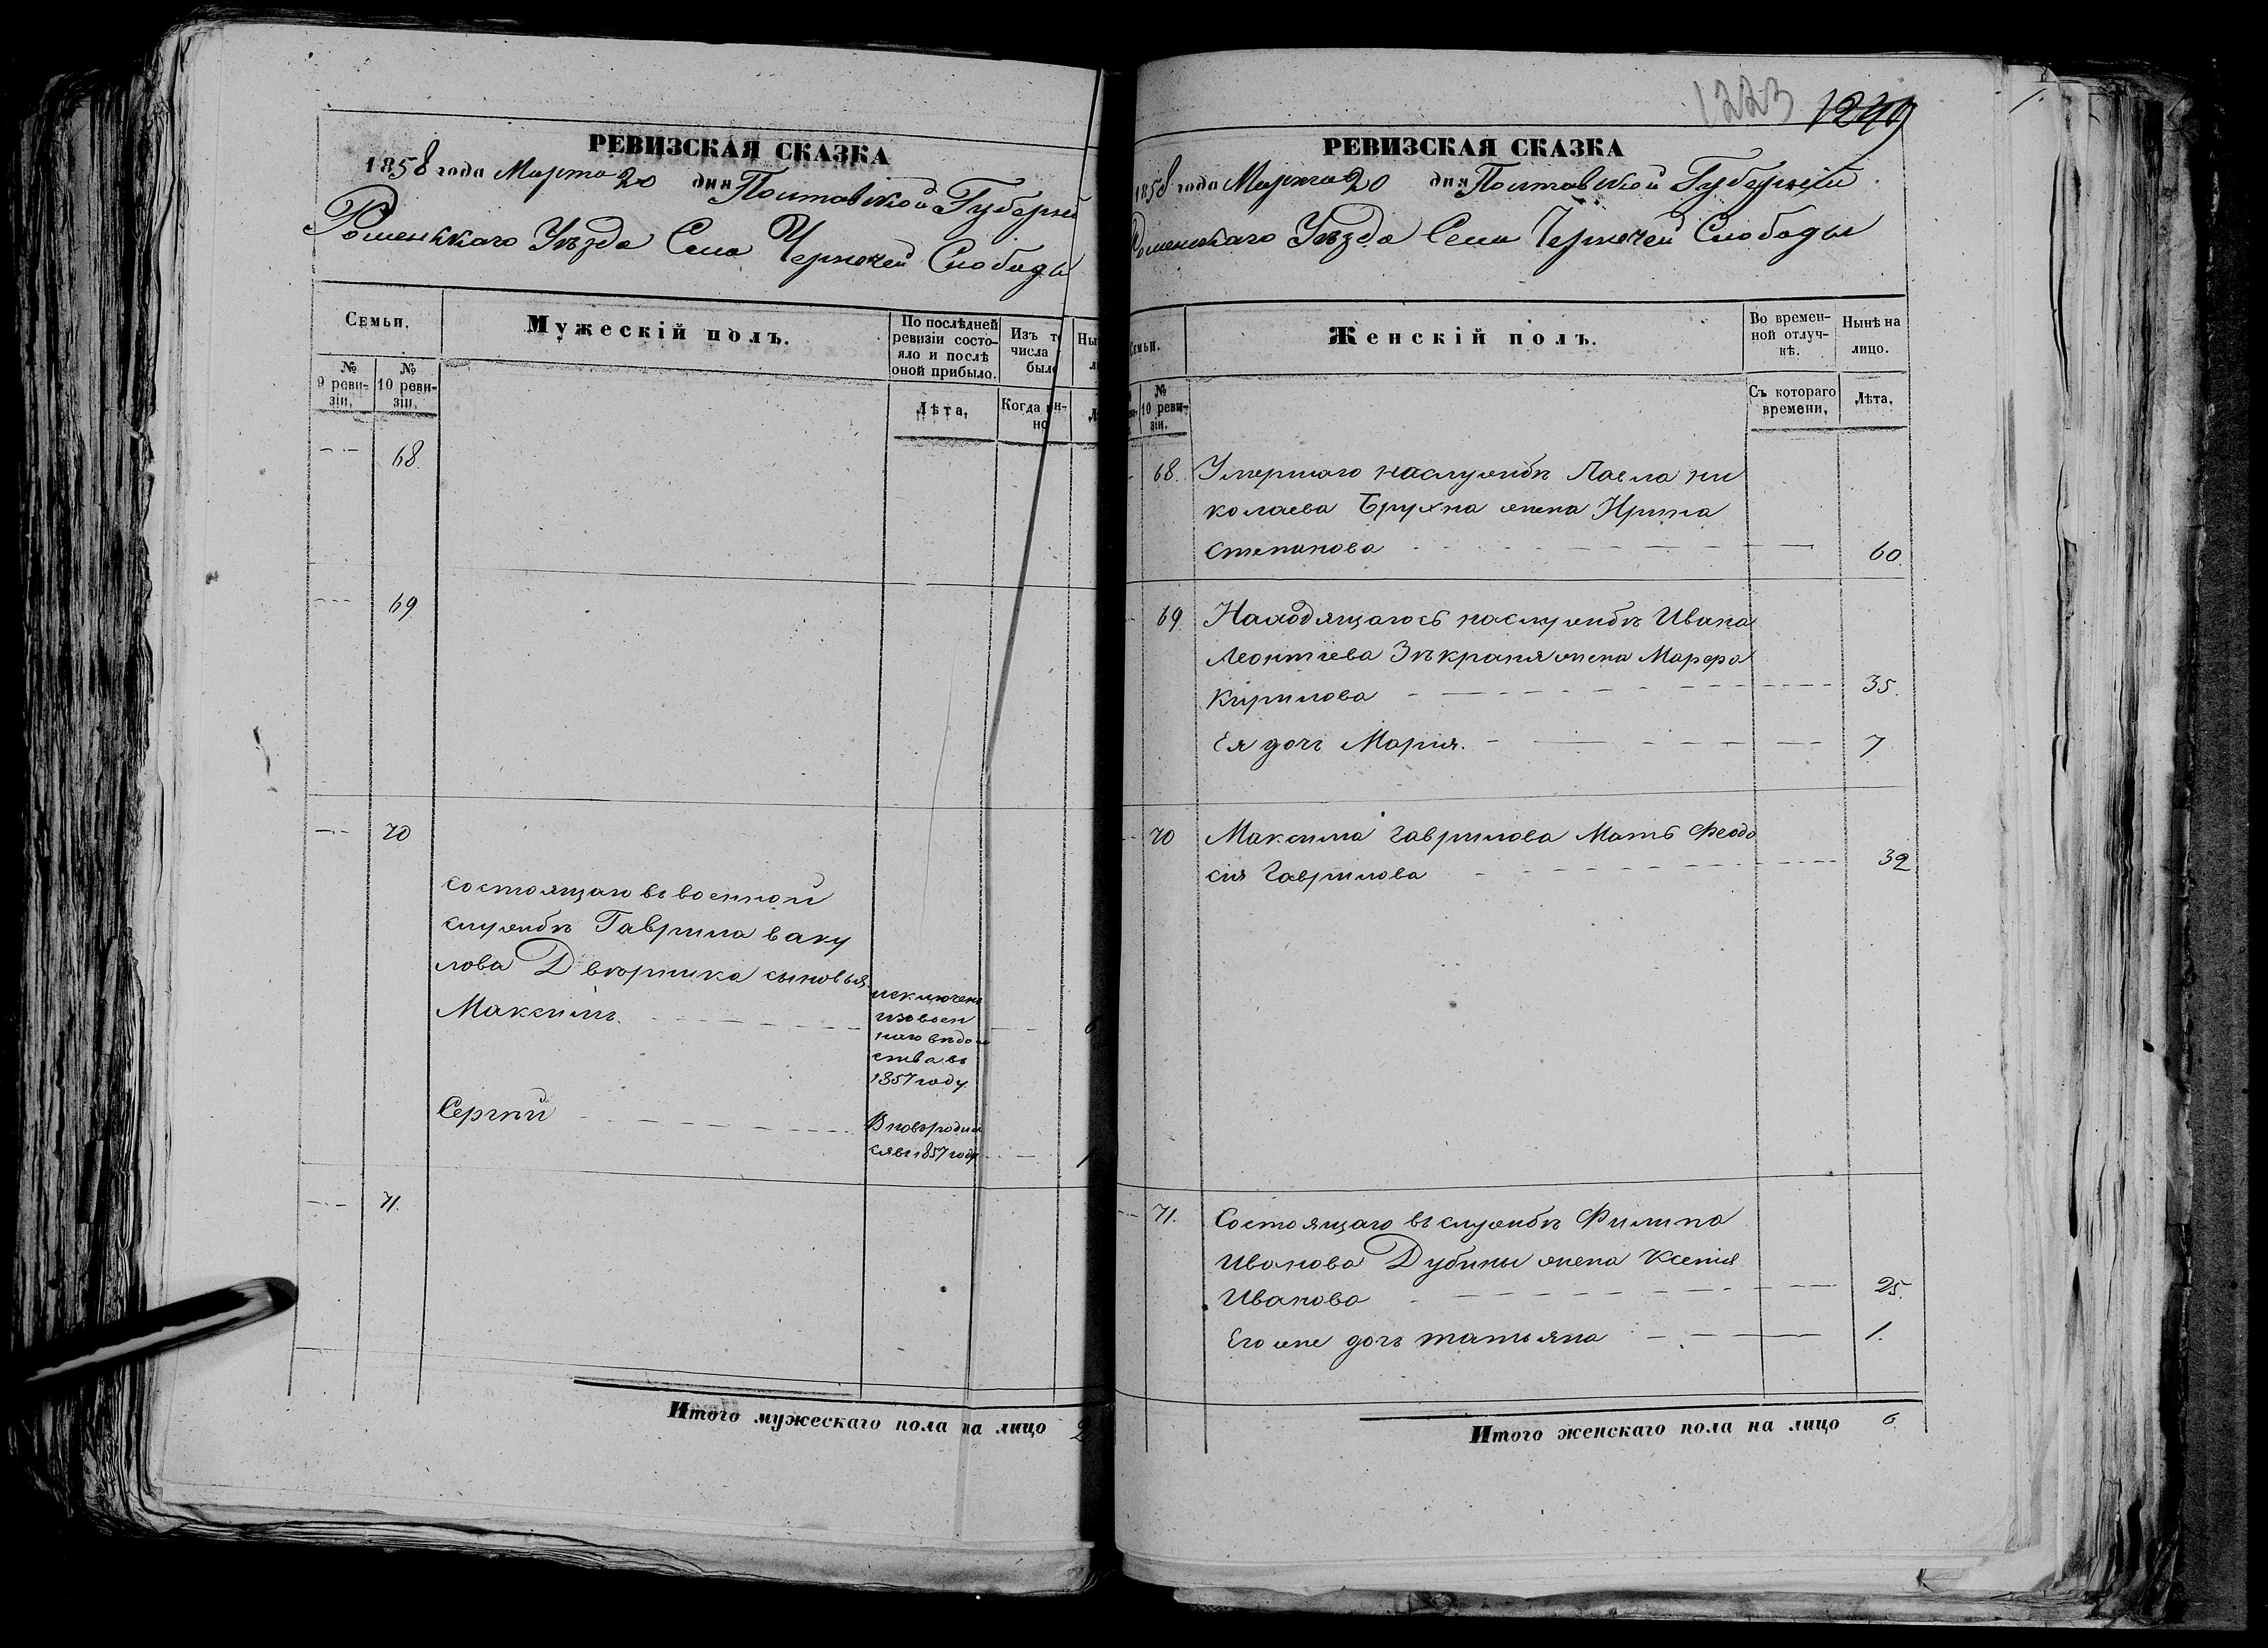 РЕВИЗСКАЯ СКАЗКА
1858 года Марта 20 дня Полтавской Губерніи
Роменскаго Уѣзда Села Чернечей Слободы
Семьи.
Мужескій полъ.
По послѣдней ревизіи состояло и послѣ оной прибыло.
Изъ т
числа
было
Ны
№ 9 ревизіи.
№ 10 ревизіи.
Лѣта.
Когда
68.
69
70
состоящаго въ военной
службѣ Гаврила Ваку
лова Дворника сыновья
Максимъ
исключенъ
изъ воен
наго вѣдом
ства въ
1857 году
6
Сергѣй
Вновь родил
ся въ 1857 году
1
71.
Итого мужескаго пола на лицо 2
1223 1249
РЕВИЗСКАЯ СКАЗКА
1858 года Марта 20 дня Полтавской Губерніи
Роменскаго Уѣзда Села Чернечей Слободы
Семьи.
Женскій полъ.
Во временной отлучкѣ.
Нынѣ на лицо.
№ 10 ревизіи.
Съ котораго времени.
Лѣта.
68. Умершаго на службѣ Павла Ни
колаева Брухна жена Ирина
Степанова 60.
69. Находящагось на службѣ Ивана
Леонтіева жена Марфа
Кирилова 35.
Ея дочь Мария. 7
70 Максима Гаврилова Мать Феодо
сия Гаврилова 39
71. Состоящаго въ службѣ Филипа
Иванова Дубины жена Ксенія
Иванова 25.
Его же дочь Татьяна 1.
Итого женскаго пола на лицо 6